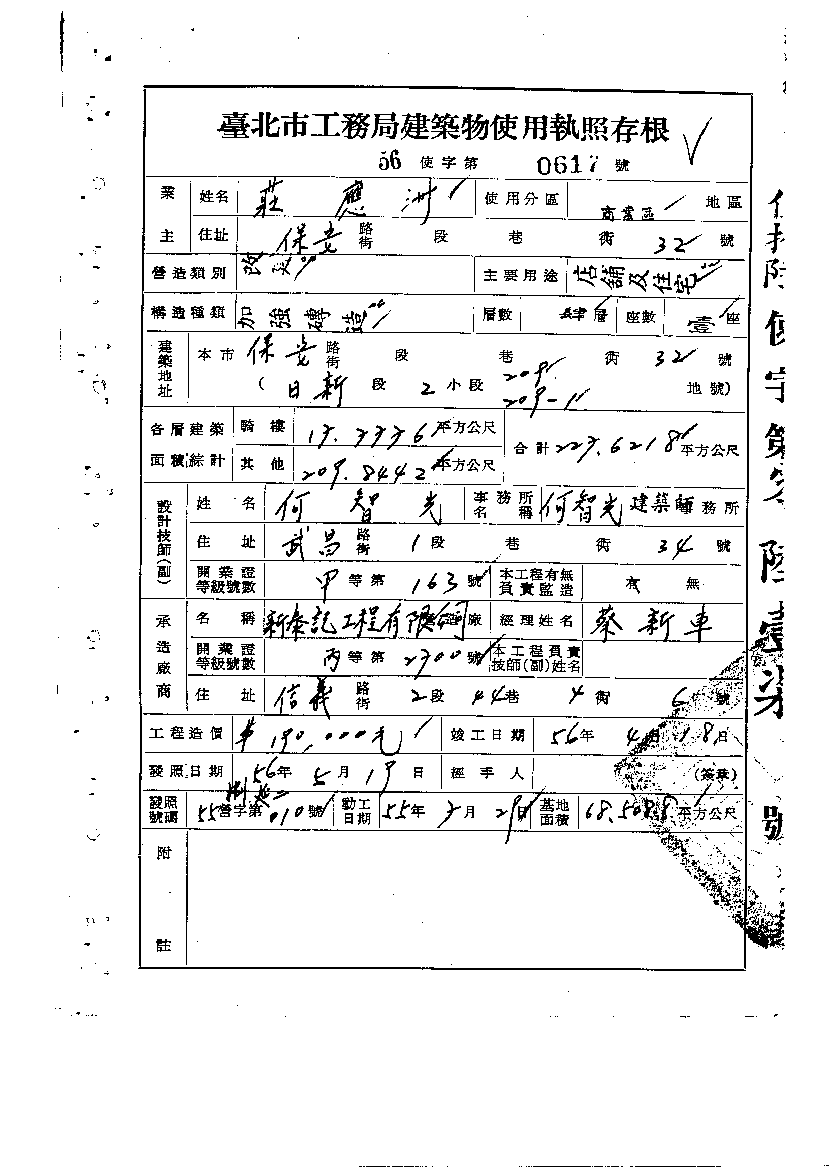 臺北市工務局建築物使用執照存根
56 使字第 0617 號
業主 姓名 莊應洲 使用分區 商業區 地區
住址 保安 路街 段 巷 衖 32 號
營造類別 改建 主要用途 店舖及住宅
構造種類 加強磚造 層數 肆層 座數 座
建築地址 本市 保安 路街 段 巷 衖 32 號
(日新 段 2 小段 209 209-1 地號)
各層建築面積綜計 騎樓 13.7776 平方公尺 合計 223.6218 平方公尺
其他 209.8442 平方公尺
設計技師(副) 姓名 何智光 事務所名稱 何智光建築師事務所
住址 武昌 路街 1段 巷 衖 34 號
開業證等級號數 甲等第 163 號 本工程有無負責監造 有 無
承造廠商 名稱 新泰記工程有限公司 造廠 經理姓名 蔡新車
開業證等級號數 丙等第 2700 號 本工程負責技師(副)姓名
住址 信義 路街 2段 44巷 4衖 6 號
工程造價 190,000元 竣工日期 56年 4月 18日
發照日期 56年 5月 19日 經手人 (簽章)
發照號碼 55營字第 010 號 動工日期 55年 3月 2日 基地面積 68.5088 平方公尺
附註
使字第 陸壹柒 號